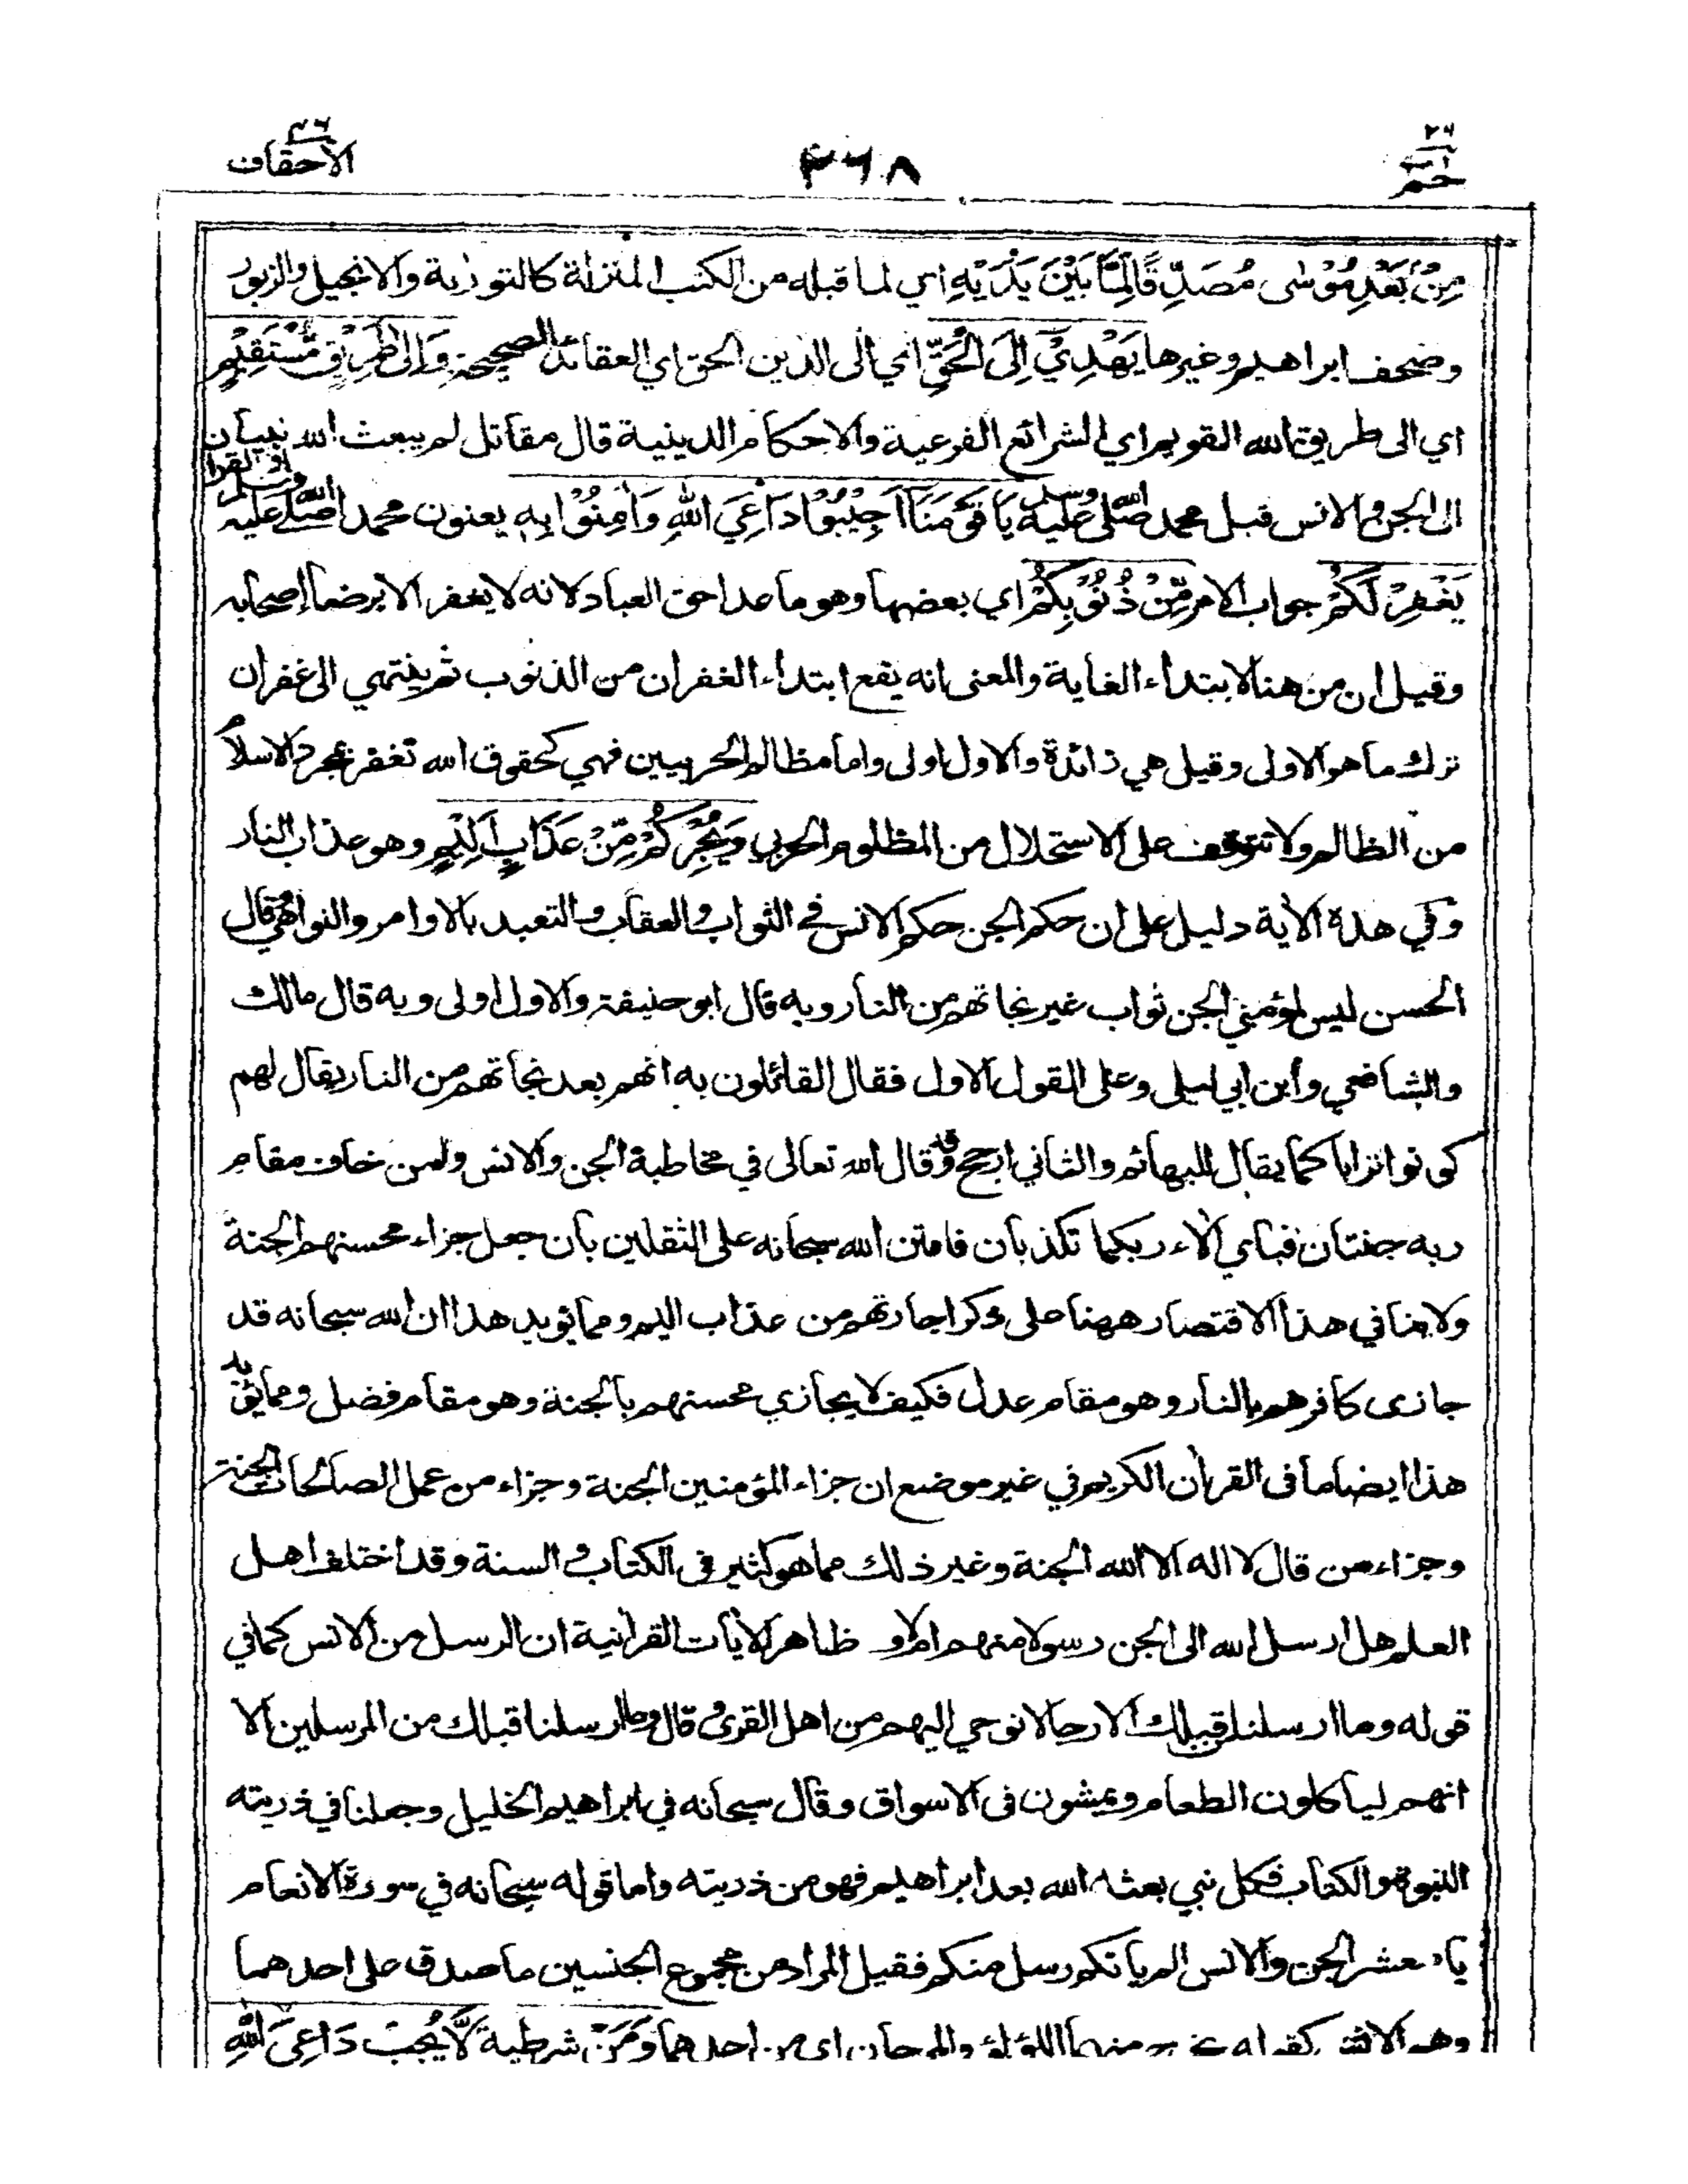 حم ٢٦
٤٦٨
الأحقاف ٤٦
مِنْ بَعْدِ مُوْسٰى مُصَدِّقًا لِّمَا بَيْنَ يَدَيْهِ اي لما قبله من الكتب المنزلة كالتورية والانجيل والزبور
وصحف ابراهيم وغيرها يَهْدِيْ اِلَى الْحَقِّ اي الى الدين الحق اي العقائد الصحيحة وَاِلٰى طَرِيْقٍ مُّسْتَقِيْمٍ
اي الى طريق الله القويم اي الشرائع الفرعية والاحكام الدينية قال مقاتل لم يبعث الله نبيا
الى الجن والانس قبل محمد صلى الله عليه وسلم يَا قَوْمَنَا اَجِيْبُوْا دَاعِيَ اللهِ وَاٰمِنُوْا بِهٖ يعنون محمدا صلى الله عليه وسلم
يَغْفِرْ لَكُمْ جواب الامر مِّنْ ذُنُوْبِكُمْ اي بعضها وهو ما عدا حق العباد لانه لا يغفر الا برضا اصحابه
وقيل ان من هنا لابتداء الغاية والمعنى انه يقع ابتداء الغفران من الذنوب ثم ينتهي الى غفران
ترك ما هو الاولى وقيل هي زائدة والاول اولى واما مظالم الحربيين فهي كحقوق الله تغفر بمجرد الاسلام
من الظالم ولا تتوقف على الاستحلال من المظلوم الحربي وَيُجِرْكُمْ مِّنْ عَذَابٍ اَلِيْمٍ وهو عذاب النار
وفي هذة الأية دليل على ان حكم الجن حكم الانس في الثواب والعقاب والتعبد بالاوامر والنواهي قال
الحسن ليس لمؤمني الجن ثواب غير نجاتهم من النار وبه قال ابو حنيفة والاول اولى وبه قال مالك
والشافعي وأبن ابي ليلى وعلى القول الاول فقال القائلون به انهم بعد نجاتهم من النار يقال لهم
كونوا ترابا كما يقال للبهائم والثاني ارجح وقد قال الله تعالى في مخاطبة الجن والانس ولمن خاف مقام
ربه جنتان فبأي ألاء ربكما تكذبان فامتن الله سبحانه على الثقلين بأن جعل جزاء محسنهم الجنة
ولا ينافي هذا الاقتصار ههنا على ذكر اجارتهم من عذاب اليم ومما يؤيد هذا ان الله سبحانه قد
جازى كافرهم بالنار وهو مقام عدل فكيف لا يجازي محسنهم بالجنة وهو مقام فضل ومما يؤيد
هذا ايضا ما في القرأن الكريم في غير موضع ان جزاء المؤمنين الجنة وجزاء من عمل الصالحات الجنة
وجزاء من قال لا اله الا الله الجنة وغير ذلك مما هو كثير في الكتاب والسنة وقد اختلف اهل
العلم هل ارسل الله الى الجن رسولا منهم ام لا و ظاهر الأيات القرأنية ان الرسل من الانس كما في
قوله وما ارسلنا قبلك الا رجالا نوحي اليهم من اهل القرى وقال وما ارسلنا قبلك من المرسلين الا
انهم ليأكلون الطعام ويمشون في الاسواق وقال سبحانه في ابراهيم الخليل وجعلنا في ذريته
النبوة والكتاب فكل نبي بعثه الله بعد ابراهيم فهو من ذريته واما قوله سبحانه في سورة الانعام
يا معشر الجن والانس الم يأتكم رسل منكم فقيل المراد من مجموع الجنسين ما صدق على احدهما
وهم الانس كقوله يخرج منهما اللؤلؤ والمرجان اي من احدهما وَمَنْ شرطية لَّا يُجِبْ دَاعِيَ اللهِ